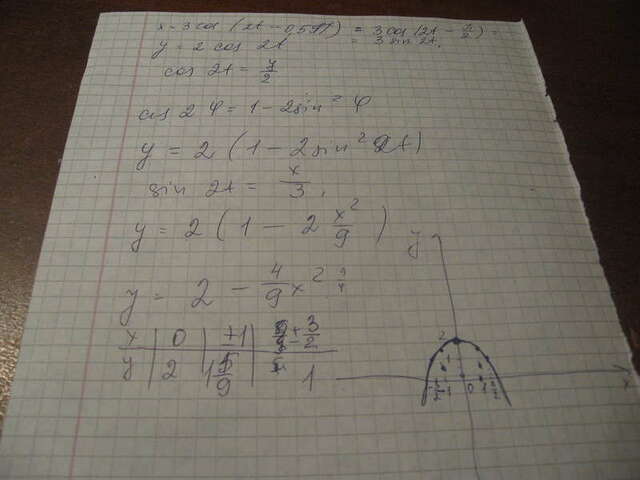 x = 3 cos (2t - 0,5π) = 3 cos (2t - π/2) =
y = 2 cos 2t = 3 sin 2t.
cos 2t = y/2
cos 2φ = 1 - 2 sin² φ
y = 2 (1 - 2 sin² 2t)
sin 2t = x/3,
y = 2 (1 - 2 x²/9)
y = 2 - 4/9 x² 9/4
x | 0 | ±1 | ± 3/2
y | 2 | 1 5/9 | 1
y
2
1
0
x